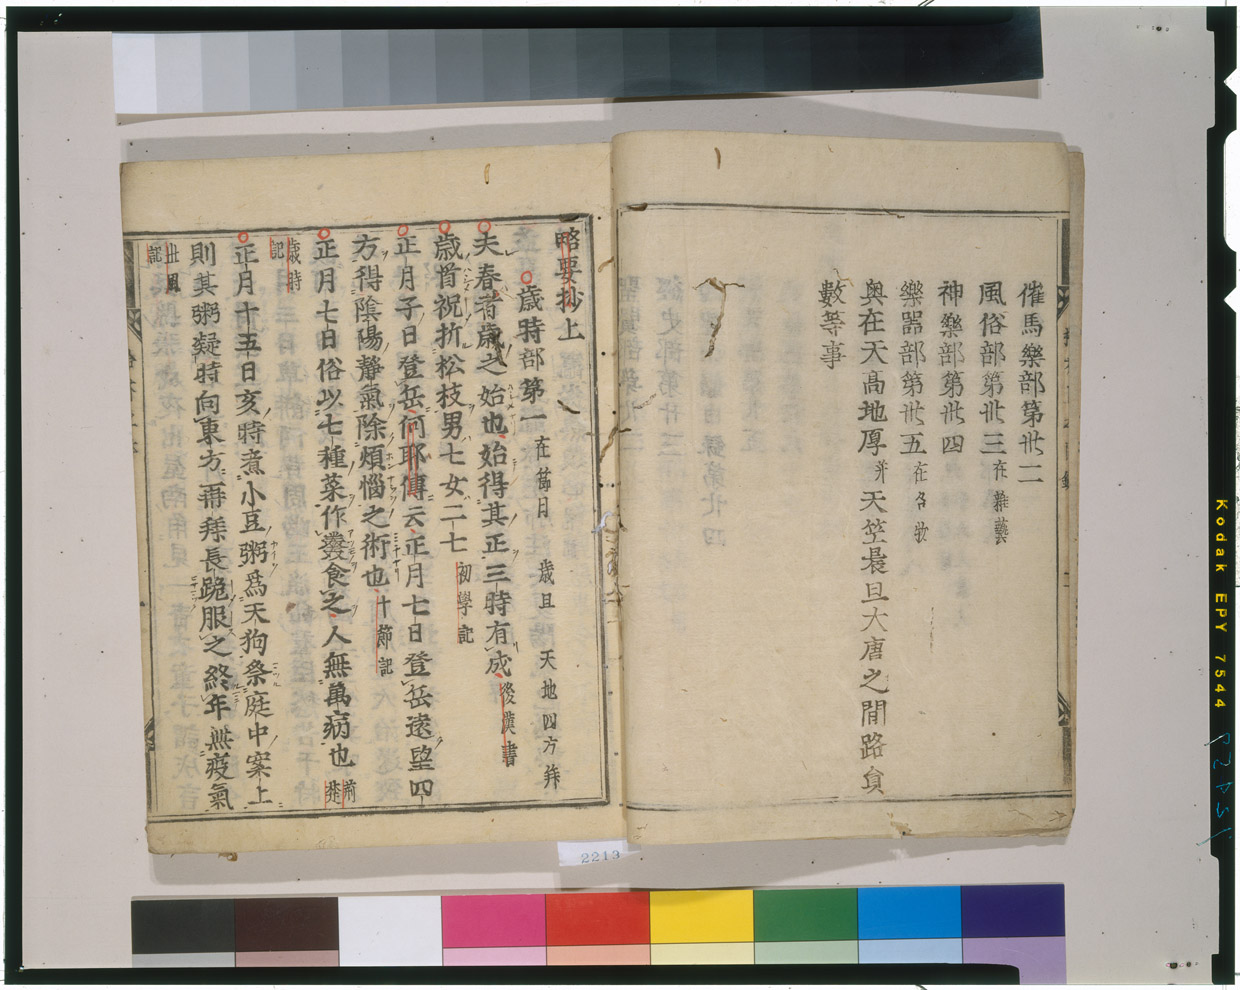 催馬樂部第卅二
風俗部第卅三在雜藝
神樂部第卅四
樂器部第卅五在名物
奥在天高地厚并天竺晨旦大唐之間路負
數等事
略要抄上
歳時部第一在節月 歳旦 天地四方拜
夫春者歳之始也始得其正三時有成後漢書
歳首祝折松枝男七女二七初學記
正月子日登岳何耶傳云正月七日登岳遠望四
方得陰陽靜氣除煩惱之術也十節記
正月七日俗以七種菜作羹食之人無萬病也荊楚
歳時記
正月十五日亥時煮小豆粥爲天狗祭庭中案上
則其粥凝時向東方再拜長跪服之終年無疫氣
世風記
2213
Kodak EPY 7544